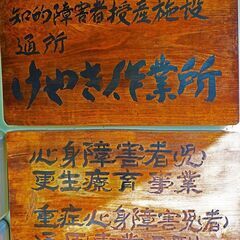 知的障害者授産施設
通所
けやき作業所
心身障害者(児)
更生療育事業
重症心身障害児(者)
通